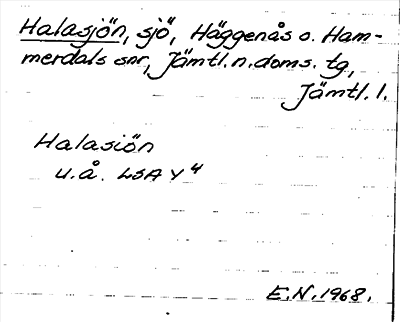 Halasjön, sjö, Häggenås o. Ham-
merdals snr, Jämtl. n. doms. tg,
Jämtl. l.
Halasiön
u.å. LSA Y 4
E.N. 1968.